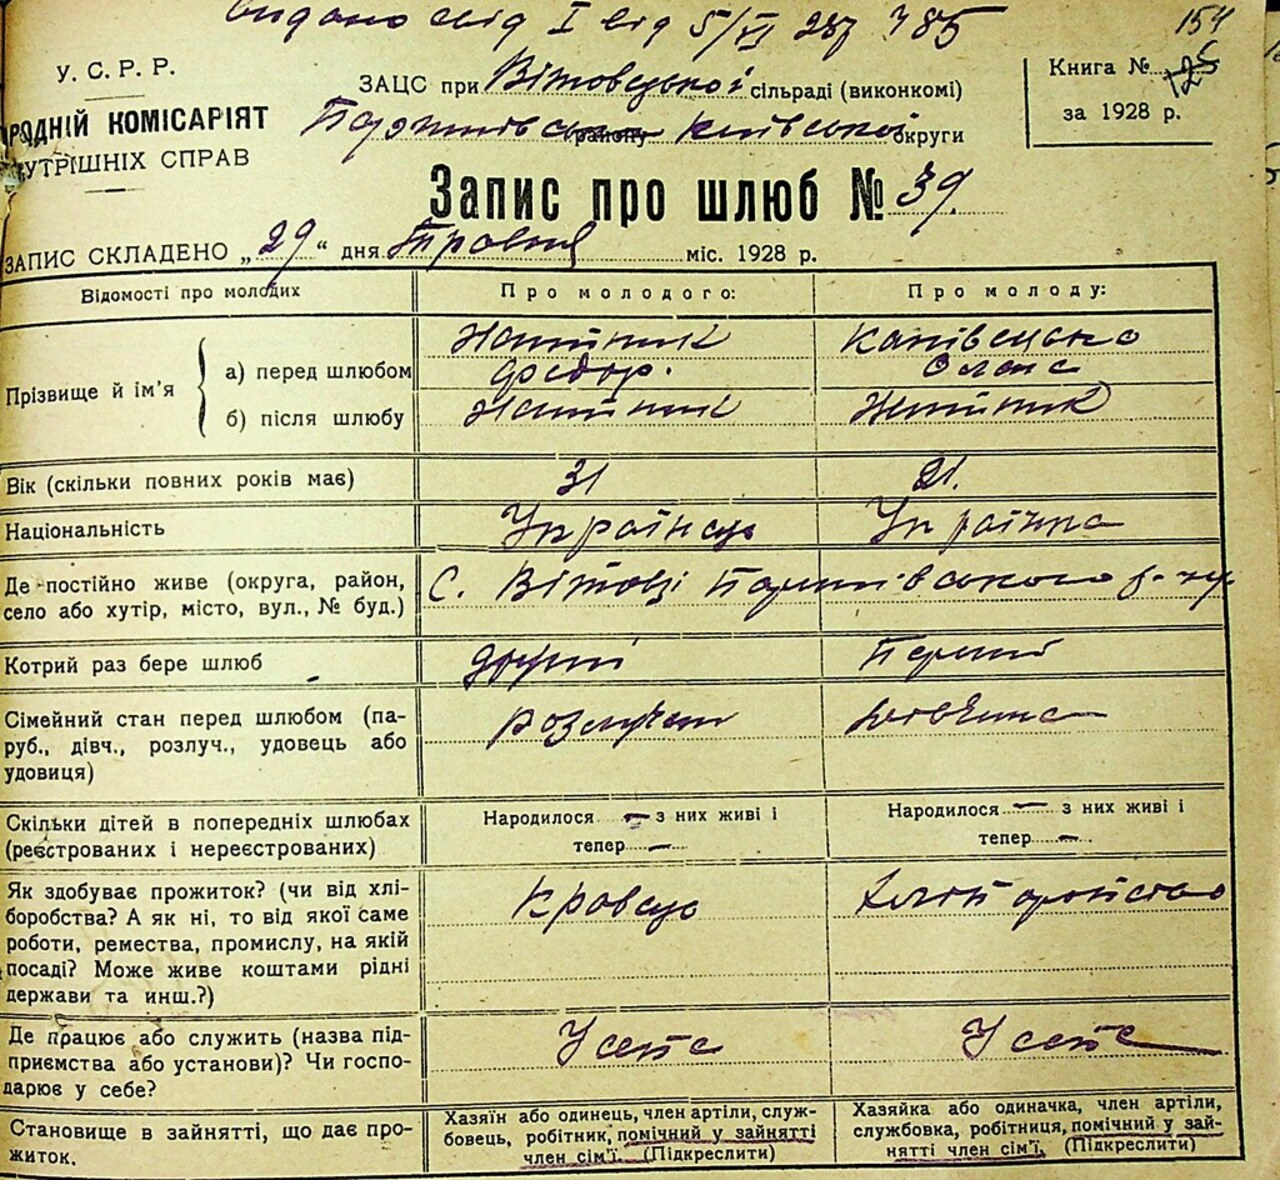 видано від I від 5/VI 28р 785
154
У. С. Р. Р.
РОДНІЙ КОМІСАРІЯТ
УТРІШНІХ СПРАВ
ЗАЦС при Вітовської сільраді (виконкомі)
району Київської округи
Книга № 125
за 1928 р.
Запис про шлюб № 39.
ЗАПИС СКЛАДЕНО „29“ дня Травня міс. 1928 р.
Відомості про молодих
Про молодого:
Про молоду:
Прізвище й ім'я
а) перед шлюбом
Житник
Федор.
Канівецька
Олена
б) після шлюбу
Житник
Житник
Вік (скільки повних років має)
31
21.
Національність
Українець
Українка
Де постійно живе (округа, район,
село або хутір, місто, вул., № буд.)
С. Вітовці
Котрий раз бере шлюб
другий
Перший
Сімейний стан перед шлюбом (па-
руб., дівч., розлуч., удовець або
удовиця)
розлучен
дівчина
Скільки дітей в попередніх шлюбах
(реєстрованих і нереєстрованих)
Народилося — з них живі і
тепер —
Народилося — з них живі і
тепер —.
Як здобуває прожиток? (чи від хлі-
боробства? А як ні, то від якої саме
роботи, ремества, промислу, на якій
посаді? Може живе коштами рідні
держави та инш.?)
Кравець
Хліборобство
Де працює або служить (назва під-
приємства або установи)? Чи госпо-
дарює у себе?
У себе
У себе
Становище в зайнятті, що дає про-
житок.
Хазяїн або одинець, член артіли, служ-
бовець, робітник, помічний у зайнятті
член сім'ї. (Підкреслити)
Хазяйка або одиначка, член артіли,
службовка, робітниця, помічний у зай-
нятті член сім'ї. (Підкреслити)